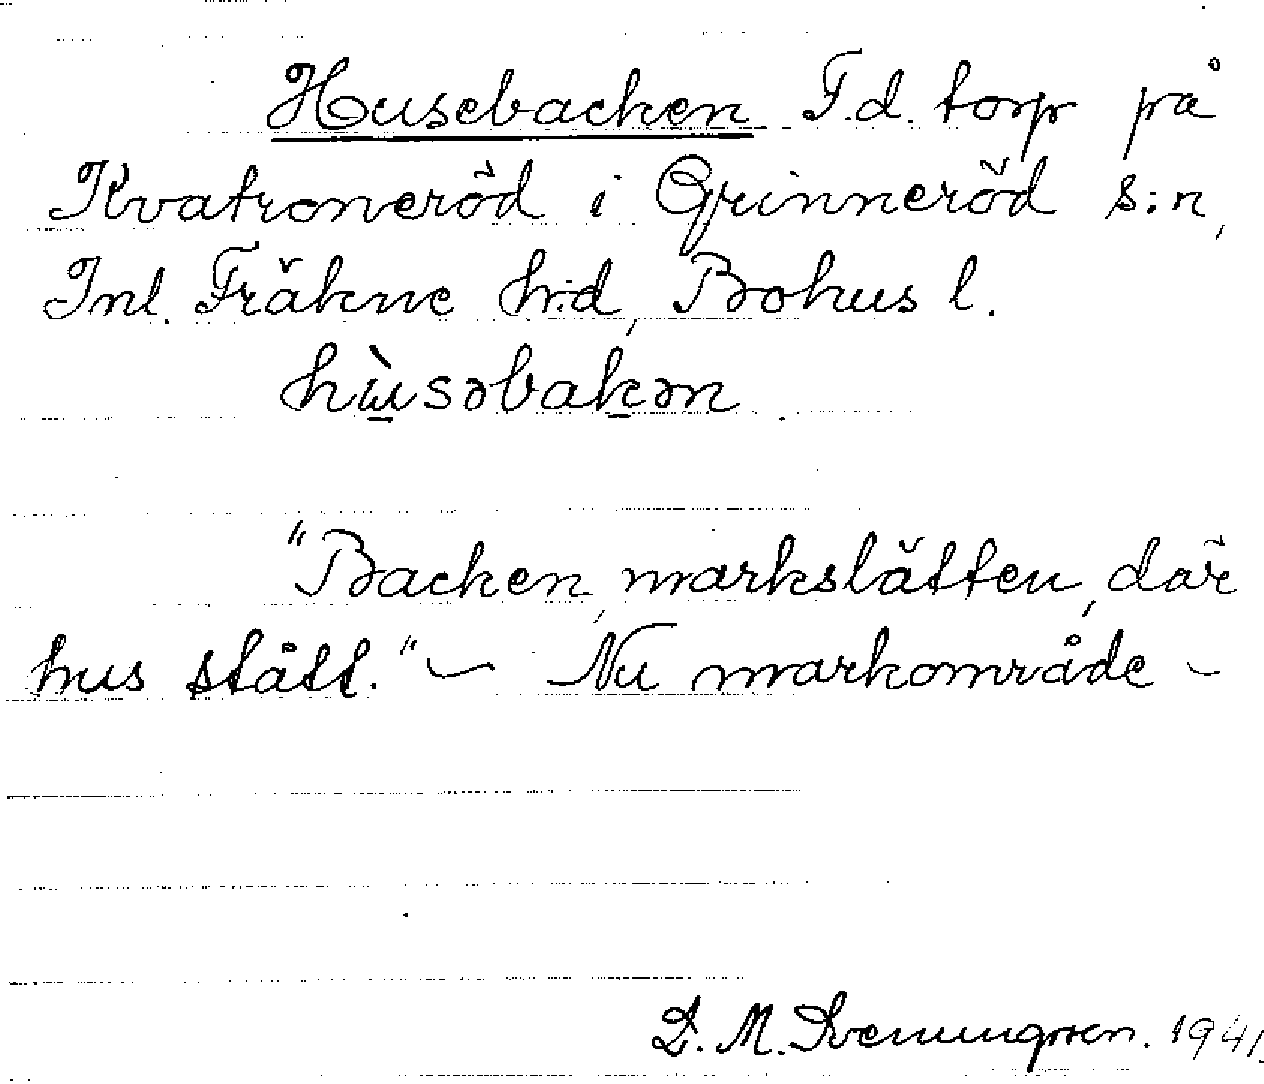 Husebacken F.d. torp på
Kvatroneröd i Grinneröd s:n,
Inl. Fräkne h:d, Bohus l.
hùsəbakən
"Backen, markslätten, där
hus stått." – Nu markområde –
D. M. Svenungsson. 1941.